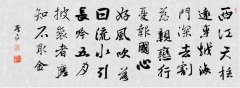 西江天柱
遠東越海
門深去割
慈親戀行
憂報國心
好風吹
日流水引
長吟五月
披裘者應
知不取金